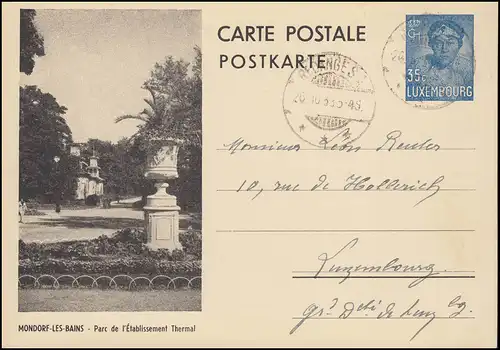 CARTE POSTALE
POSTKARTE
35c
LUXEMBOURG
Monsieur Léon Reuter
10, rue de Hollerich
Luxembourg
Gr? Dché de Luxbg.
MONDORF-LES-BAINS - Parc de l'Établissement Thermal